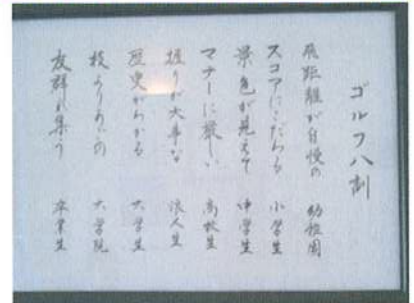 ゴルフ八
飛距離が自慢の 幼稚園
スコアにこだわる 小学生
景色が見えて 中学生
マナーに厳しい 高校生
握りが大事な 浪人生
歴史がわかる 大学生
大学院
友群れ集う 卒業生